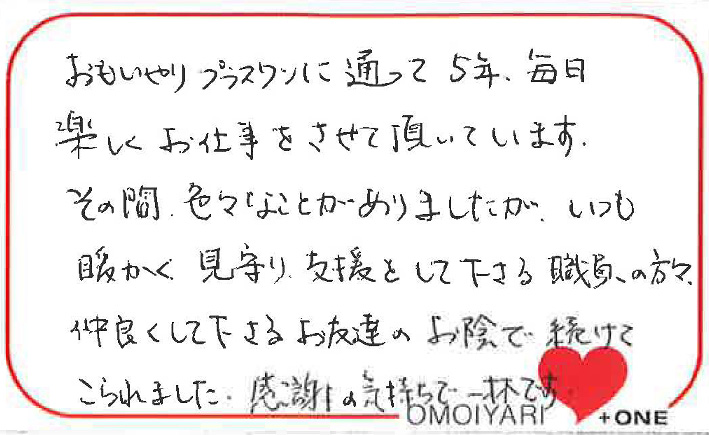 おもいやりプラスワンに通って5年、毎日
楽しくお仕事をさせて頂いています。
その間、色々なことがありましたが、いつも
暖かく見守り、支援として下さる職員の方々、
仲良くして下さるお友達のお陰で続けて
こられました。感謝の気持ちで一杯です。
OMOIYARI +ONE